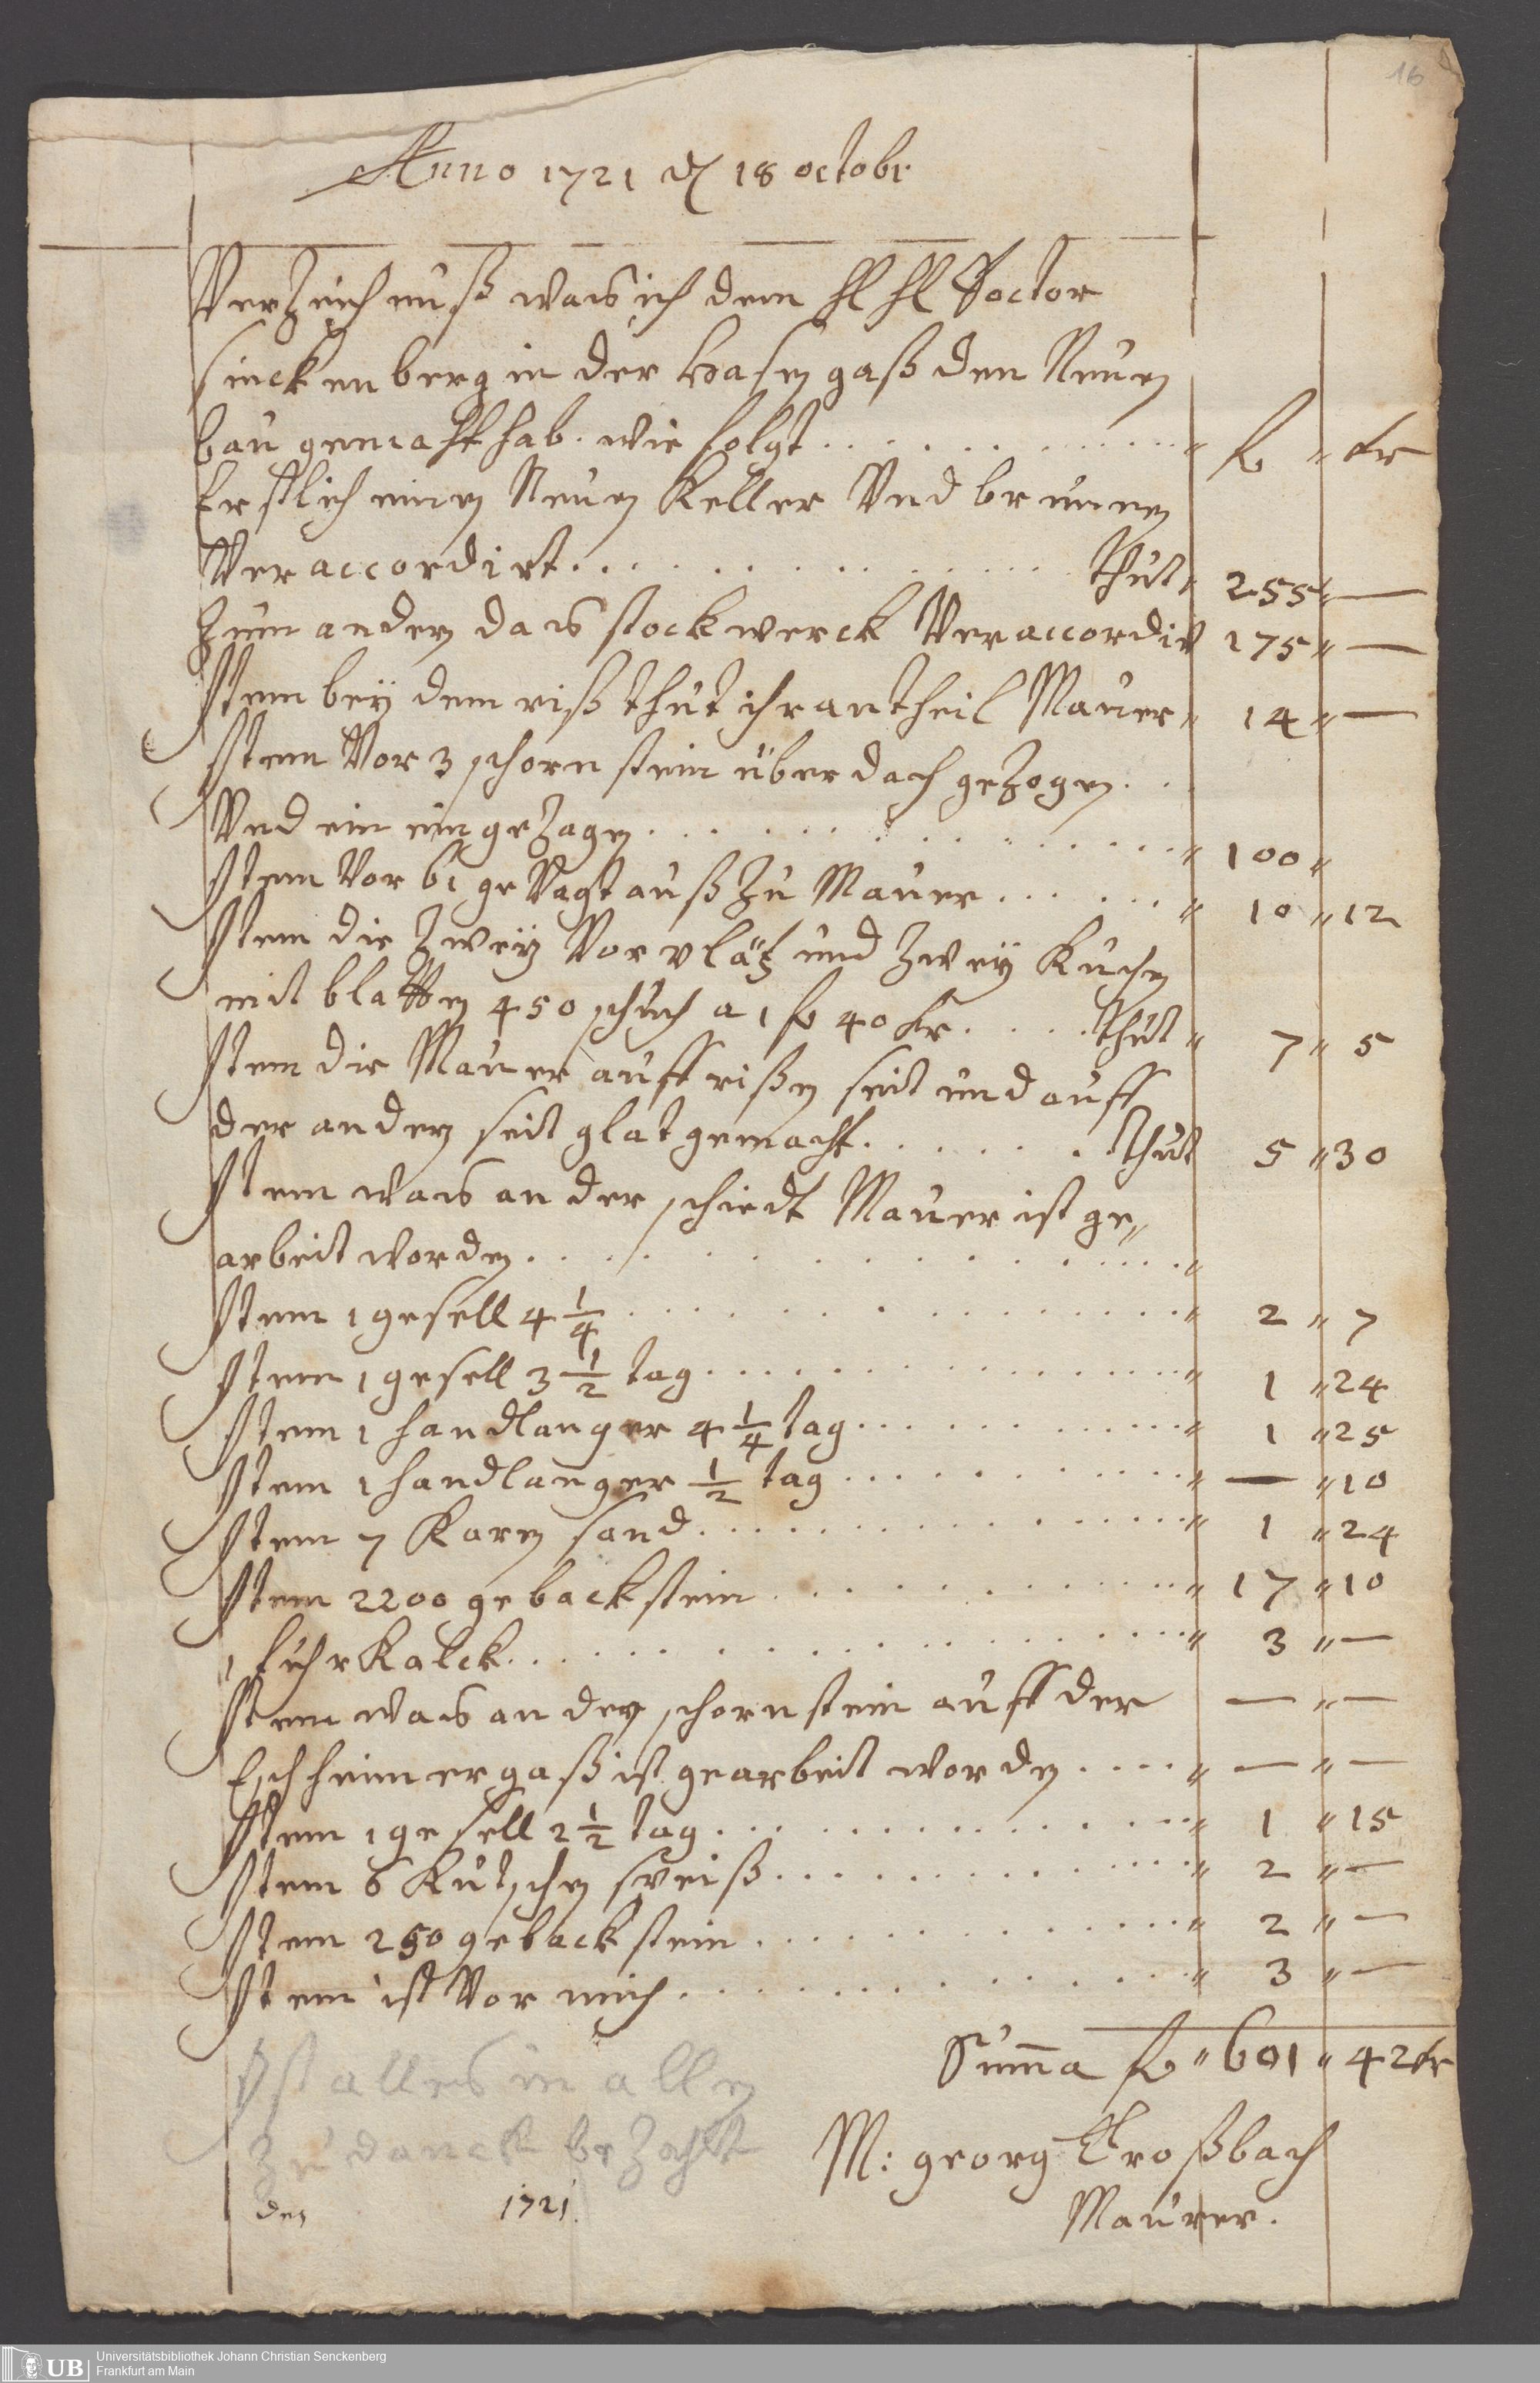 16
Anno 1721 dh 18 octobr
Verzeichnuß was ich dem Hl Hl Doctor
sinckenberg in der Hasen gaß den Neuen
bau gemacht hab. wie folgt . . . . . . . . . . " fl " kr
Erstlich einen Neuen Keller Und brunen
Veraccordirt . . . . . . . . . . . . . thut " 255 " —
Zum andern das stockwerck Veraccordir 175 " —
Item bey dem riß thut ihr antheil Mauer " 14 " —
Item Vor 3 schornstein über dach gezogen . .
Und ein eingezagen . . . . . . . . . . . . . " 100 "
Item Vor 61 gevagt auß zu Mauer . . . . . . " 10 " 12
Item die Zwey Vor pläz und Zwey Kuchen
mit blatten 450 schuch a 1 fl 40 kr . . . . thut " 7 " 5
Item die Mauer auff rißen seit und auff
der andern seit glat gemacht . . . . . . thut 5 " 30
Item was an der schiedt Mauer ist ge"
arbeit worden . . . . . . . . . . . . . . . "
Item 1 gesell 4 1/4 . . . . . . . . . . . . . " 2 " 7
Item 1 gesell 3 1/2 tag . . . . . . . . . . . . " 1 " 24
Item 1 handlanger 4 1/4 tag . . . . . . . . . " 1 " 25
Item 1 handlanger 1/2 tag . . . . . . . . . . " — " 10
Item 7 Karn sand . . . . . . . . . . . . . " 1 " 24
Item 2200 gebackstein . . . . . . . . . . . " 17 " 10
1 fuhr Kalck . . . . . . . . . . . . . . . " 3 " —
Item was an den schornstein auff der — " —
Eschheimer gaß ist gearbeit worden . . . . " — " —
Item 1 gesell 2 1/2 tag . . . . . . . . . . . . " 1 " 15
Item 6 Kutschen speiß . . . . . . . . . . . " 2 " —
Item 250 gebackstein . . . . . . . . . . . . " 2 " —
Item ist Vor mich . . . . . . . . . . . . . " 3 " —
Suma fl " 601 " 42 kr
Ist alles in allen
zu danck bezahlt
den 1721.
M: georg Croßbach
Maurer.
UB
Universitätsbibliothek Johann Christian Senckenberg
Frankfurt am Main